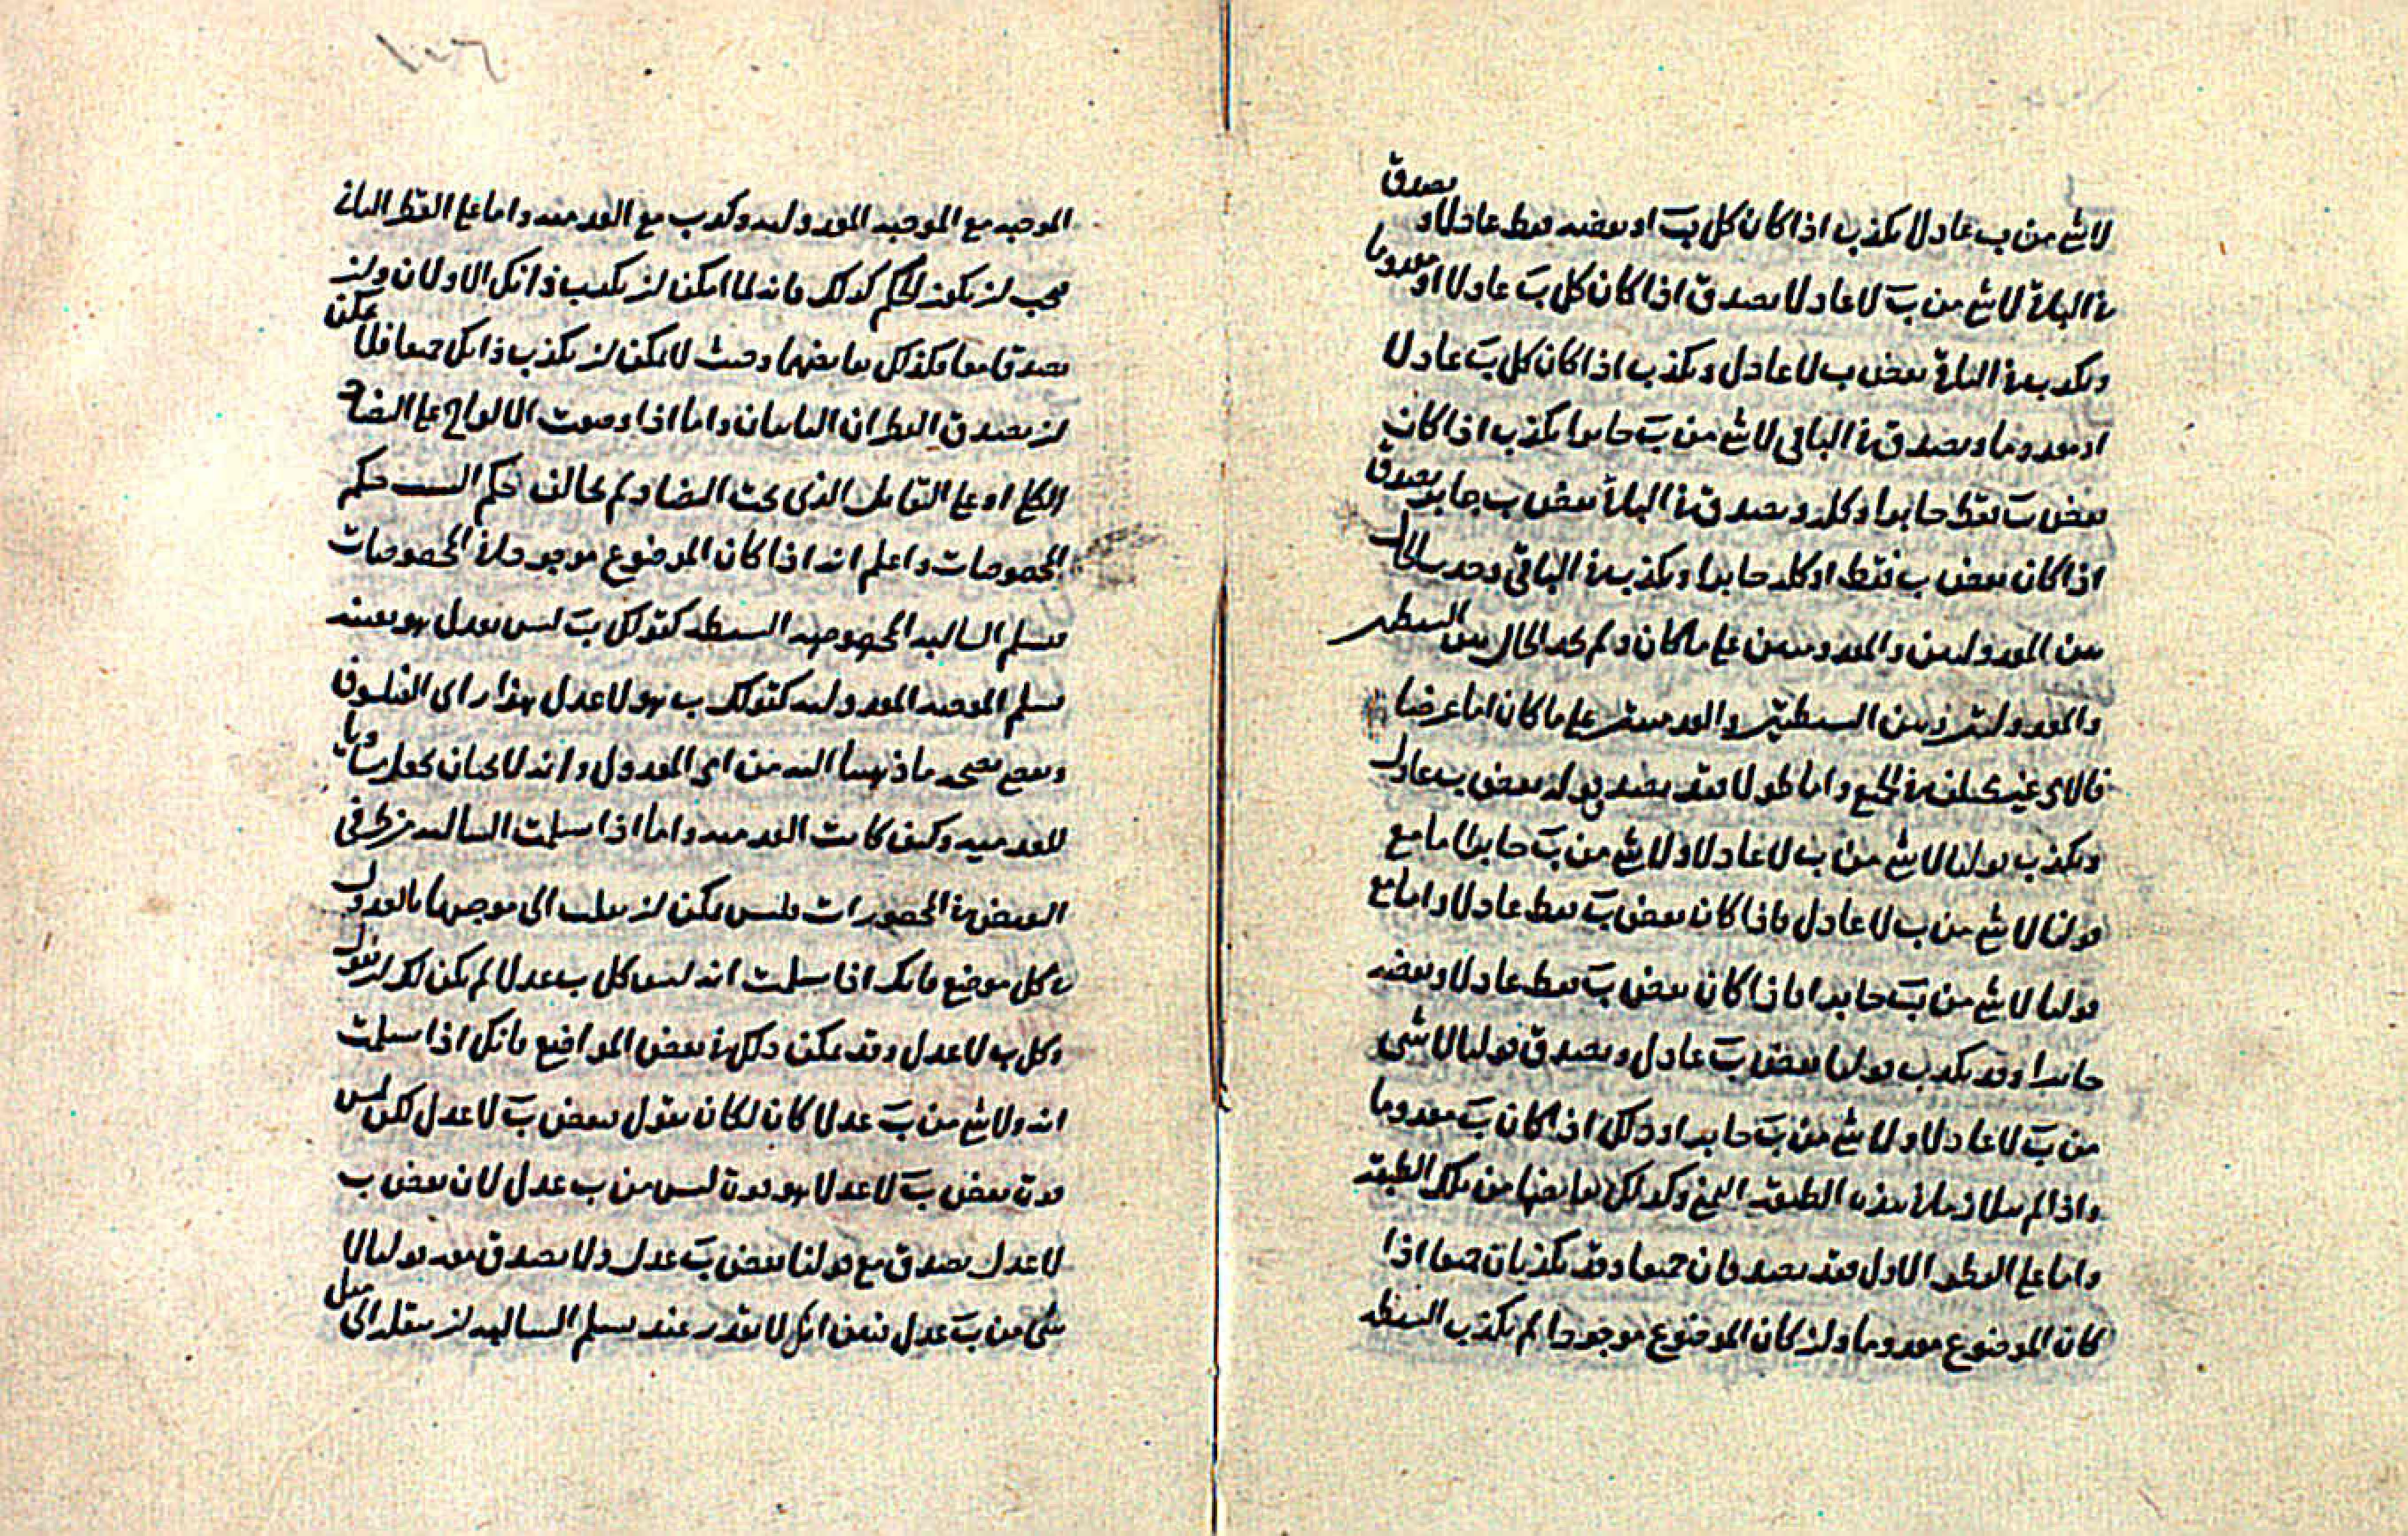 لا شئ من ب عادلا يكذب اذا كان كل ب او بعضه فقط عادلا و يصدق
في الباقي لا شئ من ب لا عادلا يصدق اذا كان كل ب عادلا او معدوما
ويكذب في الباقي بعض ب لا عادل ويكذب اذا كان كل ب عادلا
او معدوما ويصدق في الباقي لا شئ من ب جايرا يكذب اذا كان
بعض ب فقط جايرا او كله ويصدق في الباقي بعض ب جاير يصدق
اذا كان بعض ب فقط او كله جايرا ويكذب في الباقي وحد سا الحال
بين المعدوليتين والعدميتين على ما كان ولم نجد الحال بين البسيطتين
والمعدوليتين وبين البسيطتين والعدميتين على ما كان اما عرضا
فالامر غير مختلف في الجميع واما طولا فقد يصدق قولنا بعض ب عادل
ويكذب قولنا لا شئ من ب لا عادلا ولا شئ من ب جايرا اما مع
قولنا لا شئ من ب لا عادل فاذا كان بعض ب فقط عادلا واما مع
قولنا لا شئ من ب جايرا فاذا كان بعض ب فقط عادلا وبعضه
جايرا وقد يكذب قولنا بعض ب عادل ويصدق قولنا لا شي
من ب لا عادلا ولا شئ من ب جايرا وذلك اذا كان ب معدوما
واذا لم يتلازما في هذه الطبقة وكذلك نقايضها من تلك الطبقة
واما على القطر الاول فقد يصدقان جميعا وقد يكذبان جميعا اذا
كان الموضوع معدوما وان كان الموضوع موجودا لم يكذب البسيطة
١٠٦
الموجبة مع الموجبة المعدولية وكذب مع العدمية واما على القطر الثاني
فيجب ان يكون الحكم كذلك فانه لما امكن ان يكذب ذانك الاولان وان
يصدقا معا فكذلك نقايضهما وحيث لا يمكن ان يكذب ذانك جميعا فلا يمكن
ان يصدق القطران الثانيان واما اذا وضعت الالواح على التضاد
الكلي او على التقابل الذي تحت التضاد لم يخالف حكم النسب حكم
المخصوصات واعلم انه اذا كان الموضوع موجودا في المخصوصات
فتسليم السالبة المخصوصة البسيطة كقولك ب ليس بعدل هو بعينه
تسليم الموجبة المعدولية كقولك ب هو لا عدل هذا راي الفيلسوف
ويصح بصحة ما ذهبنا اليه من امر المعدول وانه لا يجب ان يجعل مساويا
للعدمية وكيف كانت العدمية واما اذا سلمت السالبة من طرفي
النقيض في المحصورات فليس يمكن ان يقلب الى موجبها بالعدول
في كل موضع فانك اذا سلمت انه ليس كل ب عدلا لم يكن لك ان تقول
وكل ب لا عدل وقد يمكن ذلك في بعض المواضع فانك اذا سلمت
انه ولا شئ من ب عدلا كان لك ان تقول بعض ب لا عدل لكن ليس
قوة بعض ب لا عدلا هو قوة ليس من ب عدل لان بعض ب
لا عدل يصدق مع قولنا بعض ب عدل ولا يصدق معه قولنا لا
شي من ب عدل فبين انك لا تقدر عند تسليم السالبة ان تنقله الى مثل